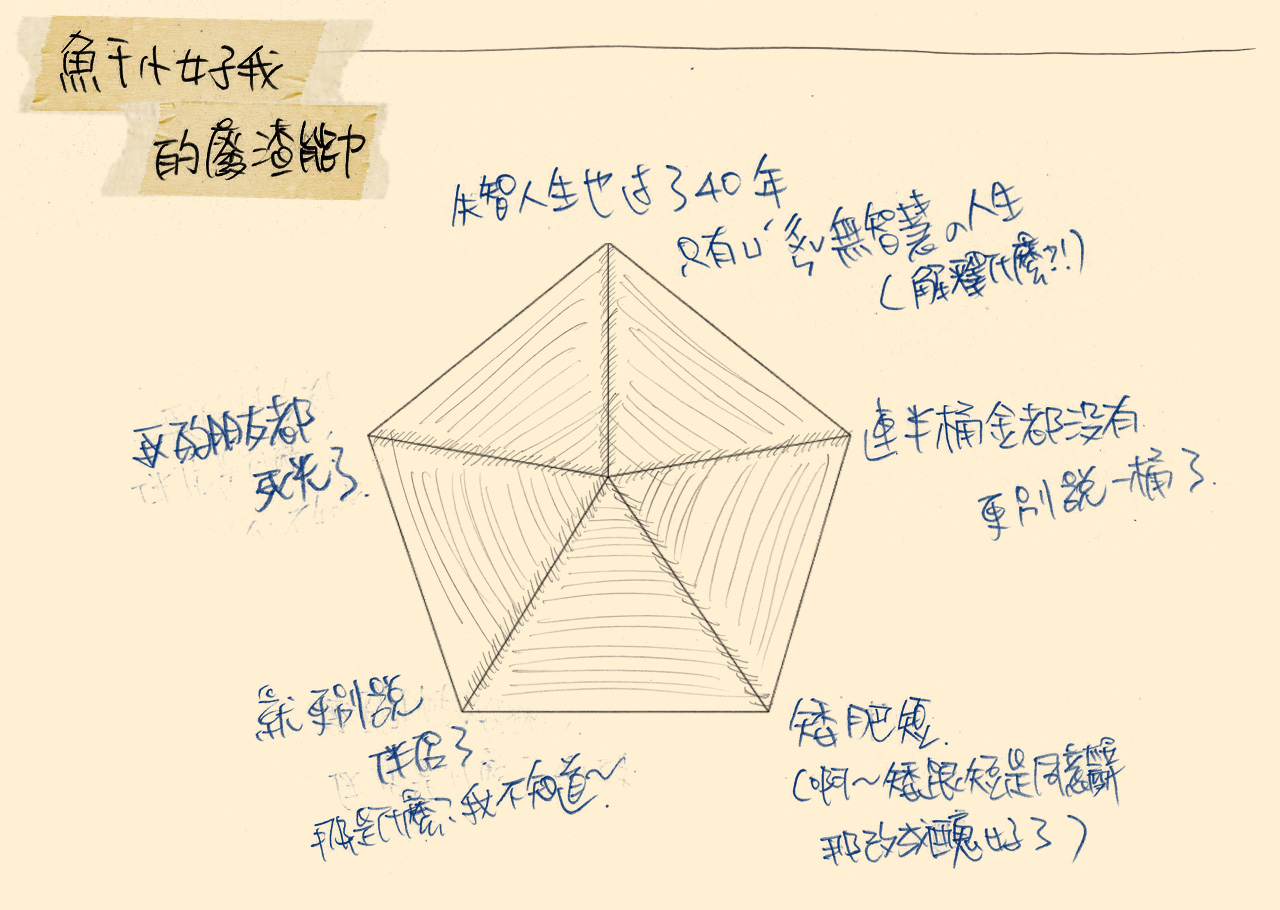 魚干小女子我
的廢渣能巾
失智人生也過了40年
只有以後無智慧の人生
(解釋什麼?!)
連半桶金都沒有
更別說一桶了.
矮肥短.
(啊~矮跟短是同意辭
那改成醜好了)
就更別說
伴侶了.
那是什麼?我不知道~
我的朋友都
死光了.